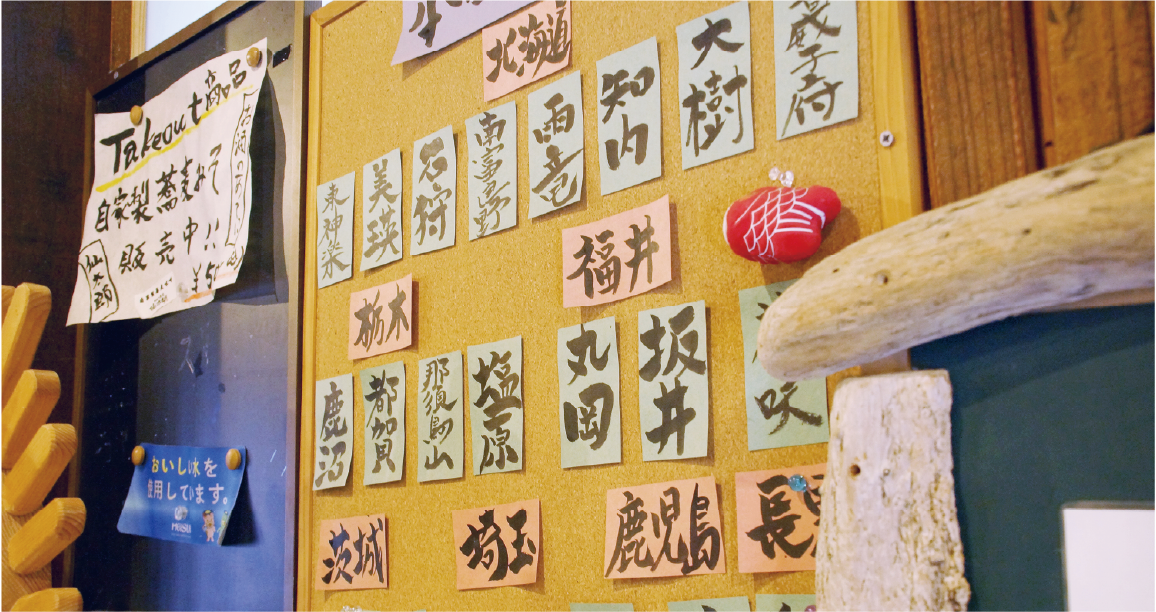 Takeout商品
自家製蕎麦おて
販売中!!
仙太郎
おいしい水を
使用しています。
北海道
大樹
知内
雨竜
南富良野
石狩
美瑛
東神楽
福井
坂井
丸岡
栃木
塩原
那須烏山
都賀
鹿沼
茨城
埼玉
鹿児島
長野